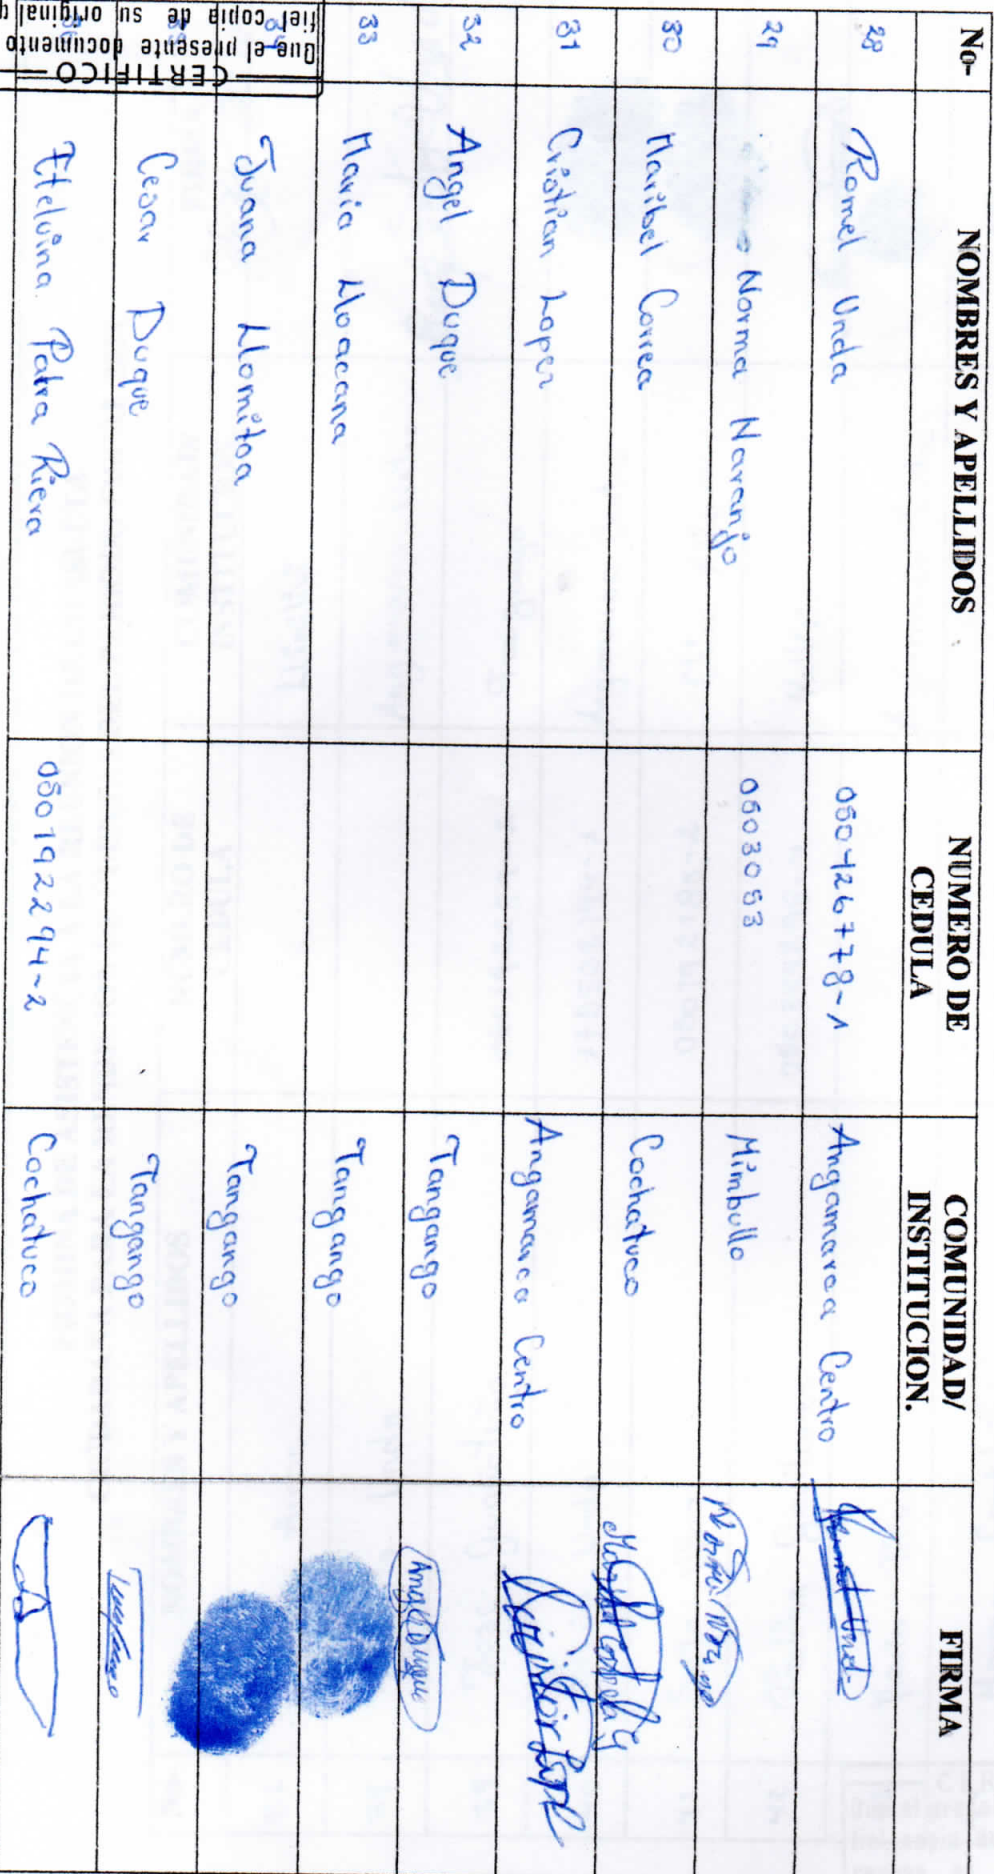 No- NOMBRES Y APELLIDOS NUMERO DE CEDULA COMUNIDAD/ INSTITUCION. FIRMA
28 Romel Unda 050426778-1 Angamarca Centro
29 Norma Naranjo 0503053 Mimbullo
30 Maribel Correa Cochatuco
31 Cristian Lopez Angamarca Centro
32 Angel Duque Tangango Angel Duque
33 Maria Lloacana Tangango
34 Juana Llomitoa Tangango
Cesar Duque Tangango
36 Etelvina Patra Riera 050192294-2 Cochatuco
CERTIFICO
Que el presente documento
fiel copia de su original